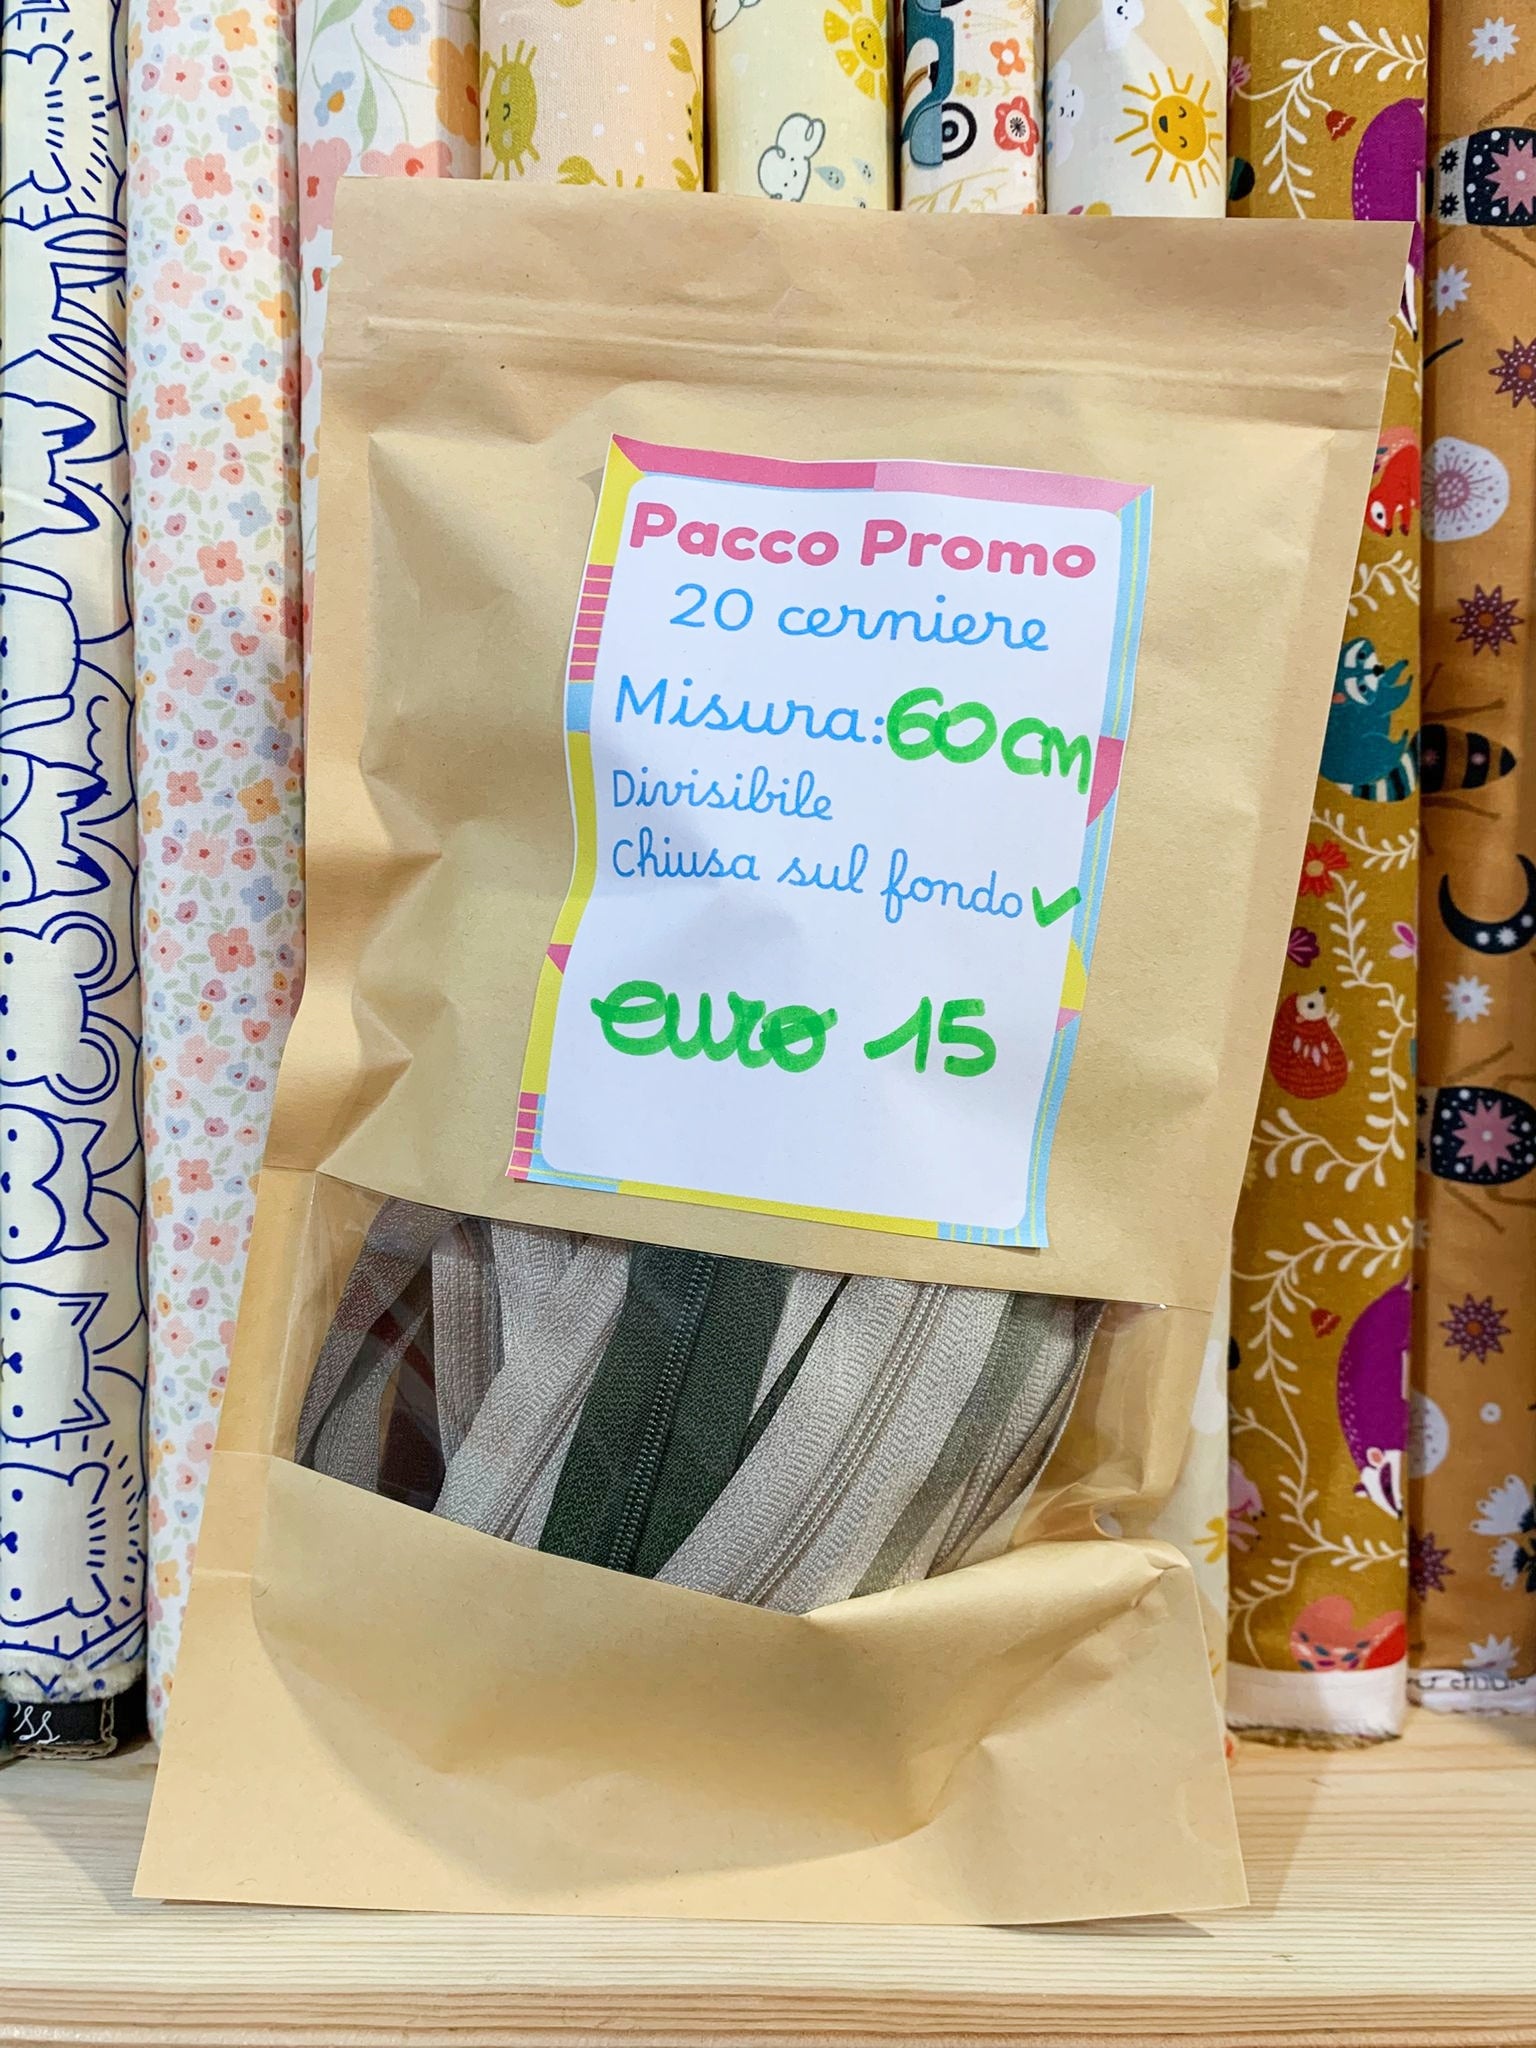 Pacco Promo
20 cerniere
Misura: 60 cm
Divisibile
Chiusa sul fondo ✓
euro 15